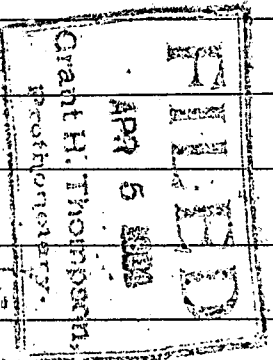 FILED
APR 5
Grant H. Thompson,
Prothonotary.